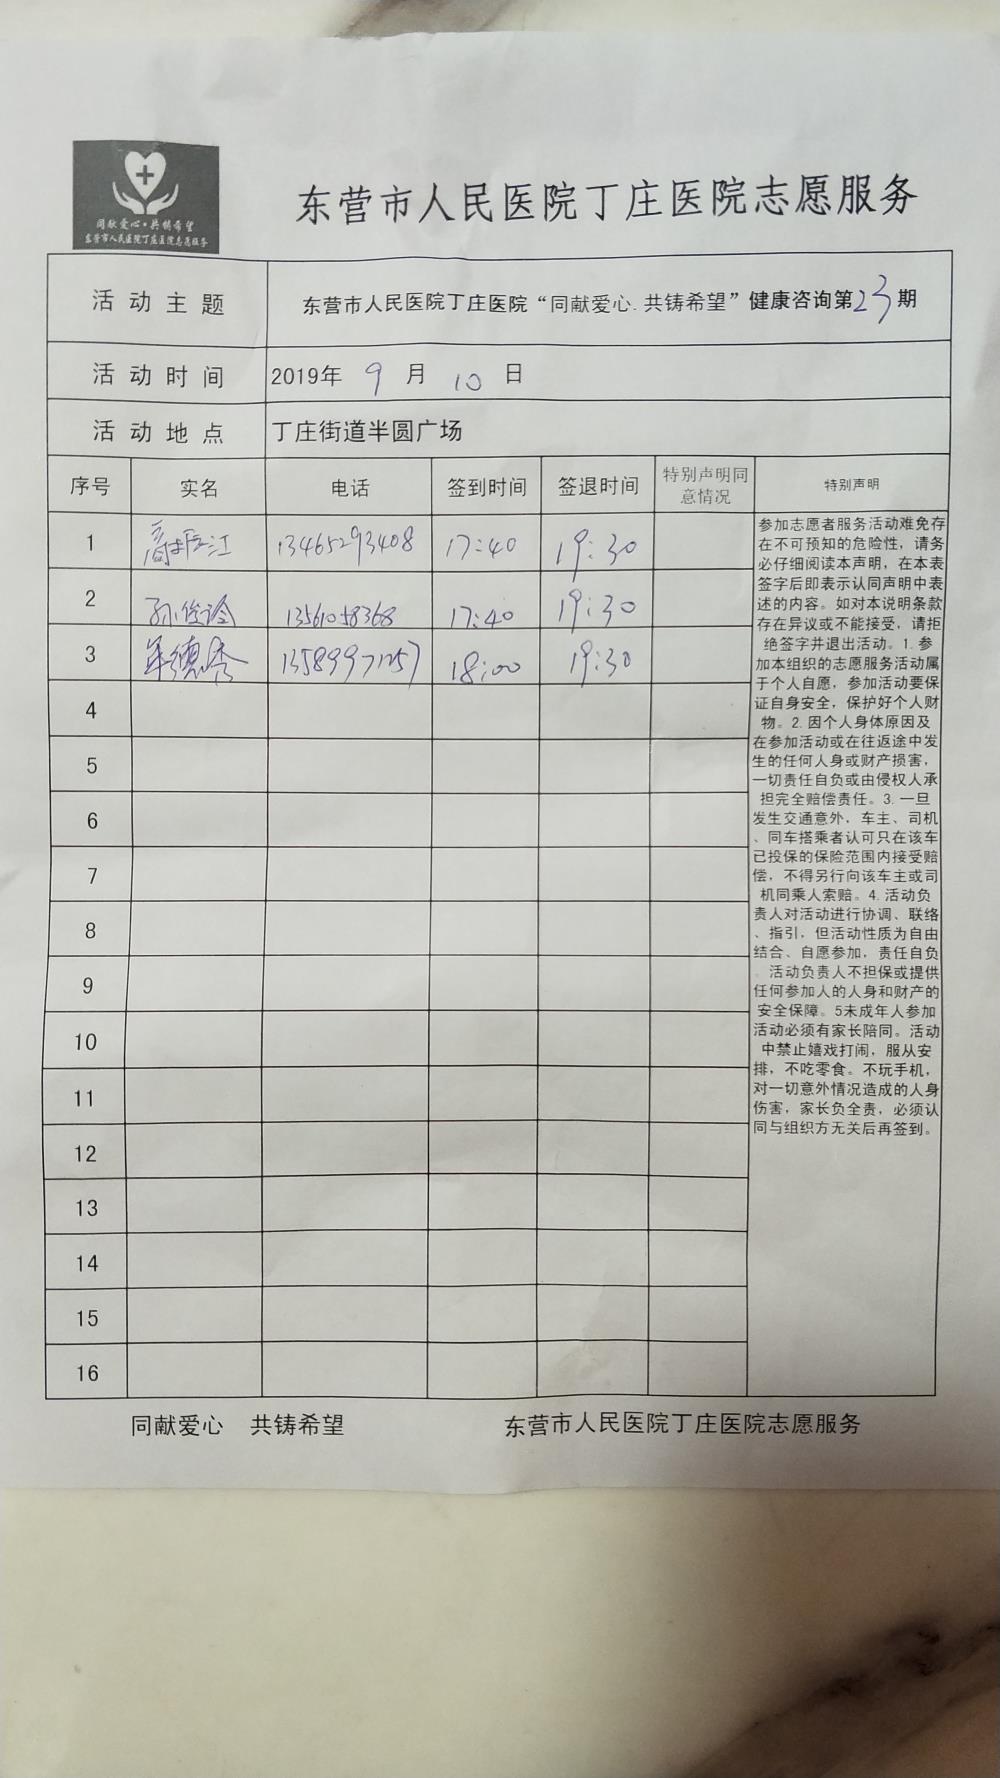 同献爱心·共铸希望
东营市人民医院丁庄医院志愿服务
东营市人民医院丁庄医院志愿服务
活动主题 东营市人民医院丁庄医院“同献爱心.共铸希望”健康咨询第23期
活动时间 2019年 9 月 10 日
活动地点 丁庄街道半圆广场
序号 实名 电话 签到时间 签退时间 特别声明同意情况 特别声明
1 13465293408 17:40 19:30
2 13561058368 17:40 19:30
3 德秀 13589971257 18:00 19:30
4
5
6
7
8
9
10
11
12
13
14
15
16
参加志愿者服务活动难免存
在不可预知的危险性，请务
必仔细阅读本声明，在本表
签字后即表示认同声明中表
述的内容。如对本说明条款
存在异议或不能接受，请拒
绝签字并退出活动。1.参
加本组织的志愿服务活动属
于个人自愿，参加活动要保
证自身安全，保护好个人财
物。2.因个人身体原因及
在参加活动或在往返途中发
生的任何人身或财产损害，
一切责任自负或由侵权人承
担完全赔偿责任。3.一旦
发生交通意外，车主、司机
、同车搭乘者认可只在该车
已投保的保险范围内接受赔
偿，不得另行向该车主或司
机同乘人索赔。4.活动负
责人对活动进行协调、联络
、指引，但活动性质为自由
结合、自愿参加，责任自负
。活动负责人不担保或提供
任何参加人的人身和财产的
安全保障。5未成年人参加
活动必须有家长陪同。活动
中禁止嬉戏打闹，服从安
排，不吃零食。不玩手机，
对一切意外情况造成的人身
伤害，家长负全责，必须认
同与组织方无关后再签到。
同献爱心 共铸希望 东营市人民医院丁庄医院志愿服务